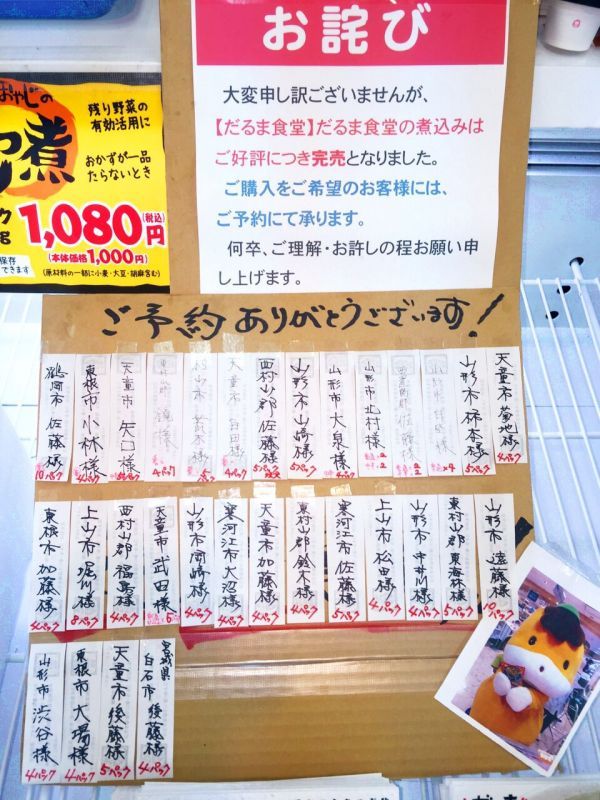 お詫び
大変申し訳ございませんが、
【だるま食堂】だるま食堂の煮込みは
ご好評につき完売となりました。
ご購入をご希望のお客様には、
ご予約にて承ります。
何卒、ご理解・お許しの程お願い申
し上げます。
おやじの
煮
残り野菜の
有効活用に
おかずが一品
たらないとき
1,080円
(税込)
(本体価格1,000円)
保存
できます
(原材料の一部に小麦・大豆・胡麻含む)
ご予約ありがとうございます!
天童市 菊地様 4パック
山形市 柿本様 5パック
山形市 北村様
山形市 大泉様 4パック
山形市 山崎様 5パック
西村山郡 佐藤様 5パック
天童市 4パック
5パック
4パック
天童市 矢口様
東根市 小林様 4パック
鶴岡市 佐藤様 10パック
山形市 遠藤様 10パック
東村山郡 東海林様 5パック
山形市 中井川様 4パック
上山市 松田様 4パック
寒河江市 佐藤様 5パック
東村山郡 鈴木様 4パック
天童市 加藤様 4パック
寒河江市 大沼様 4パック
山形市 岡崎様 4パック
天童市 武田様
西村山郡 福嶋様 4パック
上山市 堀川様 8パック
東根市 加藤様 4パック
宮城県
白石市 後藤様 4パック
天童市 後藤様 5パック
東根市 大場様 4パック
山形市 渋谷様 4パック